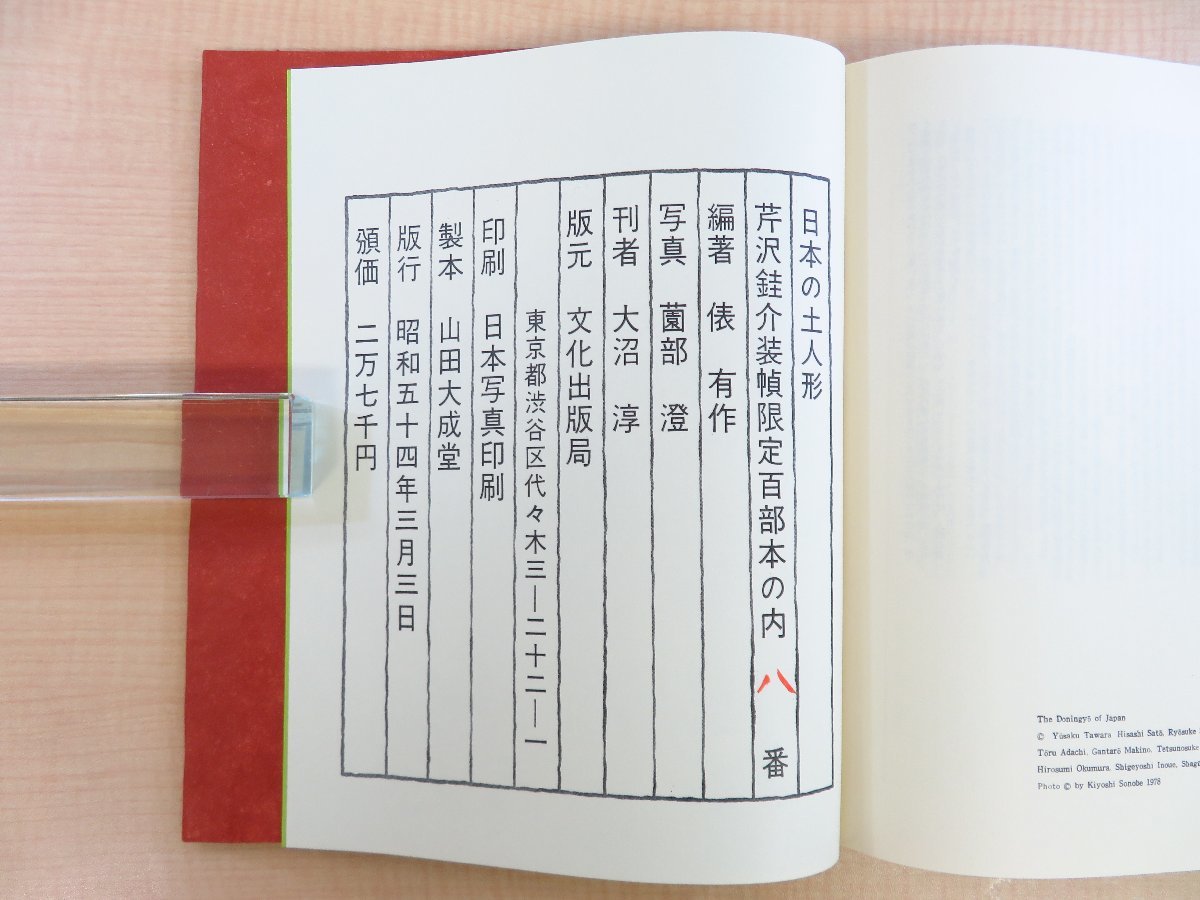 日本の土人形
芹沢銈介装幀限定百部本の内 八 番
編著 俵 有作
写真 薗部 澄
刊者 大沼 淳
版元 文化出版局
東京都渋谷区代々木三―二十二―一
印刷 日本写真印刷
製本 山田大成堂
版行 昭和五十四年三月三日
頒価 二万七千円
The Doningyō of Japan
© Yūsaku Tawara Hisashi Satō, Ryōsuke
Tōru Adachi, Gantarō Makino, Tetsunosuke
Hirosumi Okumura, Shigeyoshi Inoue, Shag
Photo © by Kiyoshi Sonobe 1978